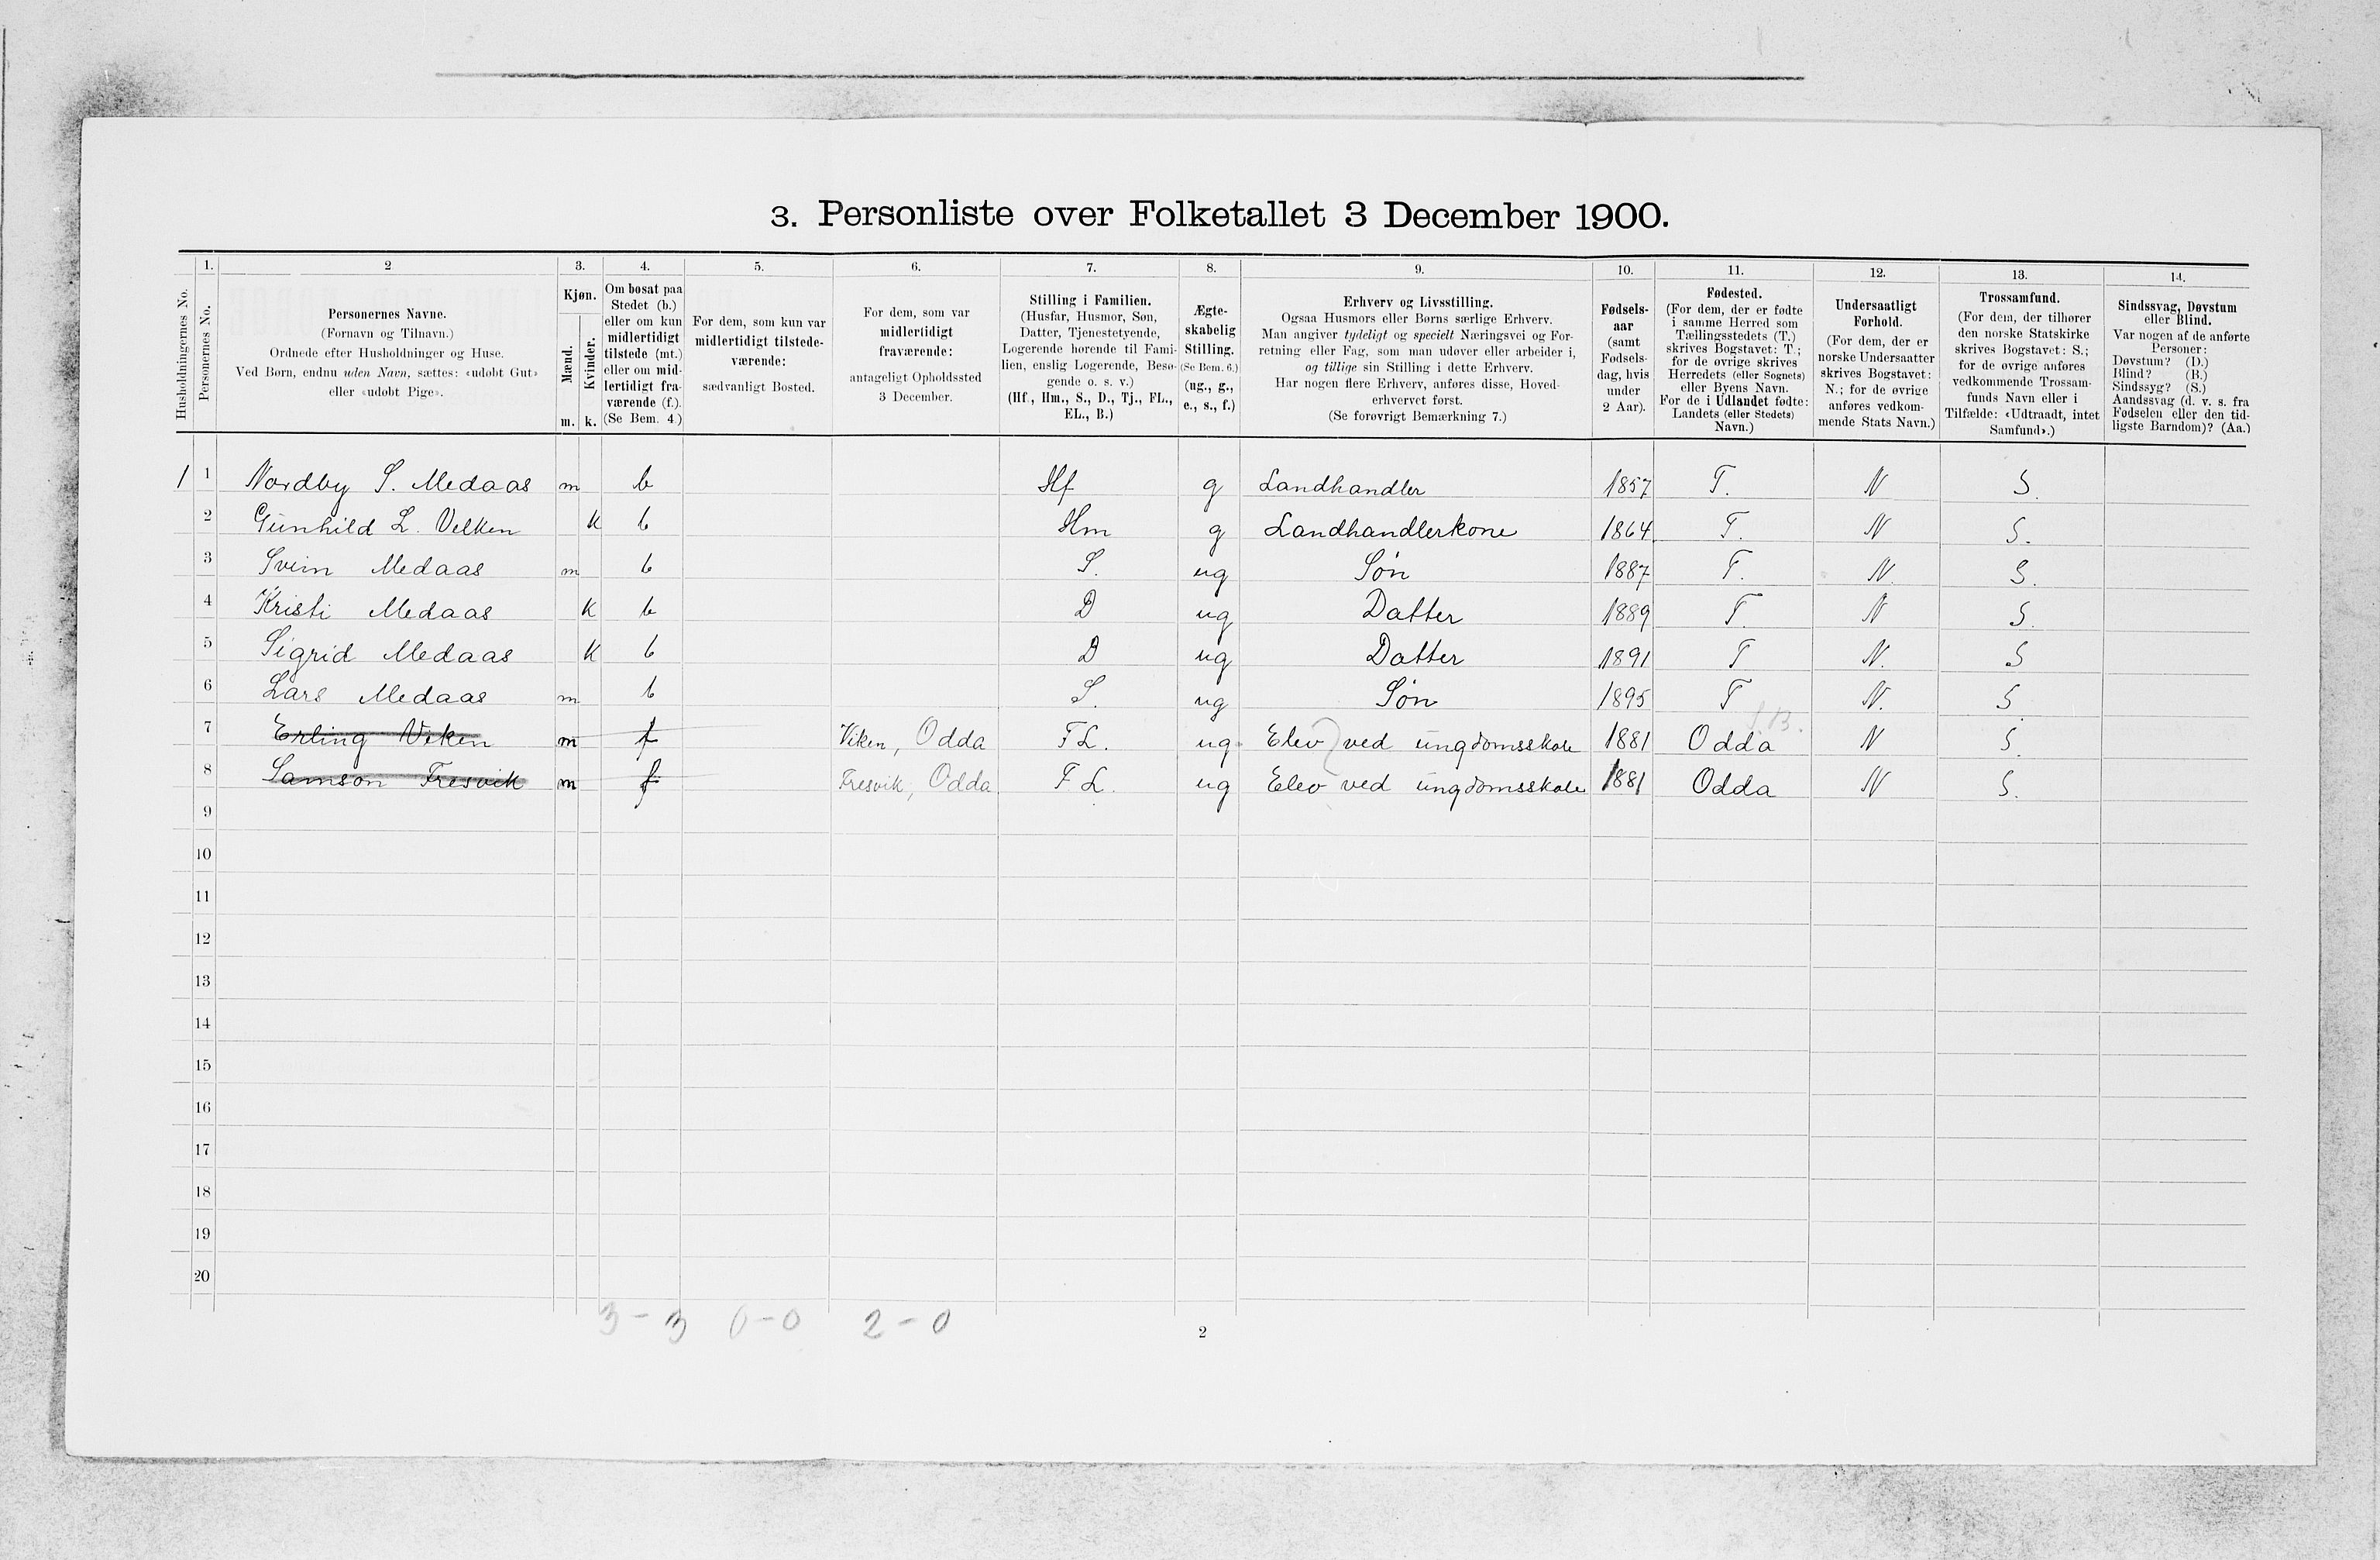 3. Personliste over Folketallet 3 December 1900.
1. 2 3. 4. 5. 6. 7. 8. 9. 10. 11. 12. 13. 14.
Husholdningernes No.
Personernes No.
Personernes Navne.
(Fornavn og Tilnavn.)
Ordnede efter Husholdninger og Huse.
Ved Børn, endnu uden Navn, sættes: «udøbt Gut»
eller «udøbt Pige».
Kjøn.
Mænd.
Kvinder.
m. k.
Om bosat paa
Stedet (b.)
eller om kun
midlertidigt
tilstede (mt.)
eller om mid-
lertidigt fra-
værende (f.).
(Se Bem. 4.)
For dem, som kun var
midlertidigt tilstede-
værende:
sædvanligt Bosted.
For dem, som var
midlertidigt
fraværende:
antageligt Opholdssted
3 December.
Stilling i Familien.
(Husfar, Husmor, Søn,
Datter, Tjenestetyende,
Logerende hørende til Fami-
lien, enslig Logerende, Besø-
gende o. s. v.)
(Hf., Hm., S., D., Tj., FL.,
EL., B.)
Ægte-
skabelig
Stilling.
(Se Bem. 6.)
(ug., g.,
e., s., f.)
Erhverv og Livsstilling.
Ogsaa Husmors eller Børns særlige Erhverv.
Man angiver tydeligt og specielt Næringsvei og For-
retning eller Fag, som man udøver eller arbeider i,
og tillige sin Stilling i dette Erhverv.
Har nogen flere Erhverv, anføres disse, Hoved-
erhvervet først.
(Se forøvrigt Bemærkning 7.)
Fødsels-
aar
(samt
Fødsels-
dag, hvis
under
2 Aar).
Fødested.
(For dem, der er fødte
i samme Herred som
Tællingsstedets (T.)
skrives Bogstavet: T.;
for de øvrige skrives
Herredets (eller Sognets)
eller Byens Navn.
For de i Udlandet fødte:
Landets (eller Stedets)
Navn.)
Undersaatligt
Forhold.
(For dem, der er
norske Undersaatter
skrives Bogstavet:
N.; for de øvrige
anføres vedkom-
mende Stats Navn.)
Trossamfund.
(For dem, der tilhører
den norske Statskirke
skrives Bogstavet: S.;
for de øvrige anføres
vedkommende Trossam-
funds Navn eller i
Tilfælde: «Udtraadt, intet
Samfund».)
Sindssvag, Døvstum
eller Blind.
Var nogen af de anførte
Personer:
Døvstum? (D.)
Blind? (B.)
Sindssyg? (S.)
Aandssvag (d. v. s. fra
Fødselen eller den tid-
ligste Barndom)? (Aa.)
1 1 Nordby S. Medaas m b Hf g Landhandler 1857 T. N S.
2 Gunhild L. Velken k b Hm g Landhandlerkone 1864 T. N S.
3 Svein Medaas m b S. ug Søn 1887 T. N. S.
4 Kristi Medaas k b D ug Datter 1889 T. N S.
5 Sigrid Medaas k b D ug Datter 1891 T N. S
6 Lars Medaas m b S. ug Søn 1895 T N. S
7 Erling Viken m f Viken, Odda FL. ug. Elev ved ungdomsskole 1881 Odda N S.
8 Samson Fresvik m f Fresvik, Odda FL. ug Elev ved ungdomsskole 1881 Odda N S.
9
10
11
12
13
14
15
16
17
18
19
20
3-3 0-0 2-0
2